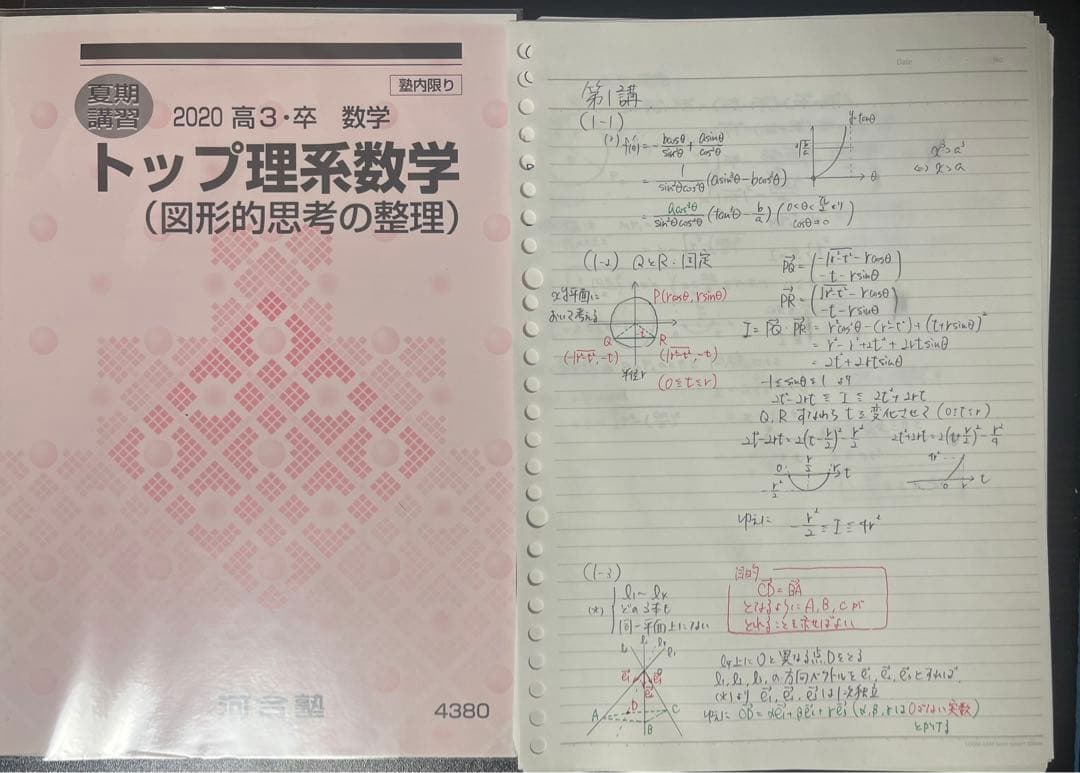 夏期
講習
塾内限り
2020 高3・卒 数学
トップ理系数学
(図形的思考の整理)
河合塾
4380
Date
No
第1講
(1-1)
(2) f'(θ) = -bcosθ/sin²θ + asinθ/cos²θ
= 1/sin²θcos²θ (asin³θ - bcos³θ)
= acos³θ/sin²θcos²θ (tan³θ - b/a) (0<θ<π/2 より cosθ≠0)
y=tanθ
θ
x³>a³
⇔ x>a
(1-2) QとR:固定
xy平面に
おいて考える
P(rcosθ, rsinθ)
Q
R
(-√r²-t², -t)
(√r²-t², -t)
半径r
(0≦t≦r)
PQ = (-√r²-t² - rcosθ, -t - rsinθ)
PR = (√r²-t² - rcosθ, -t - rsinθ)
I = PQ・PR = r²cos²θ - (r²-t²) + (t+rsinθ)²
= r² - r² + 2t² + 2rtsinθ
= 2t² + 2rtsinθ
-1≦sinθ≦1 より
2t²-2rt ≦ I ≦ 2t²+2rt
Q, R すなわち tを変化させて (0≦t≦r)
2t²-2rt = 2(t-r/2)² - r²/2
2t²+2rt = 2(t+r/2)² - r²/4
0
r/2
r
t
-r²/2
4r²
0
r
t
ゆえに -r²/2 ≦ I ≦ 4r²
(1-3)
(*)
l₁~l₄
どの3本も
同一平面上にない
目的
CD = BA
となるようにA, B, Cが
とれることを示せばよい
A
B
C
D
l₄上にOと異なる点Dをとる
l₁, l₂, l₃の方向ベクトルをe₁, e₂, e₃とすれば
(*)より e₁, e₂, e₃は1次独立
ゆえに OD = αe₁+βe₂+γe₃ (α, β, γは0でない実数)
とかける